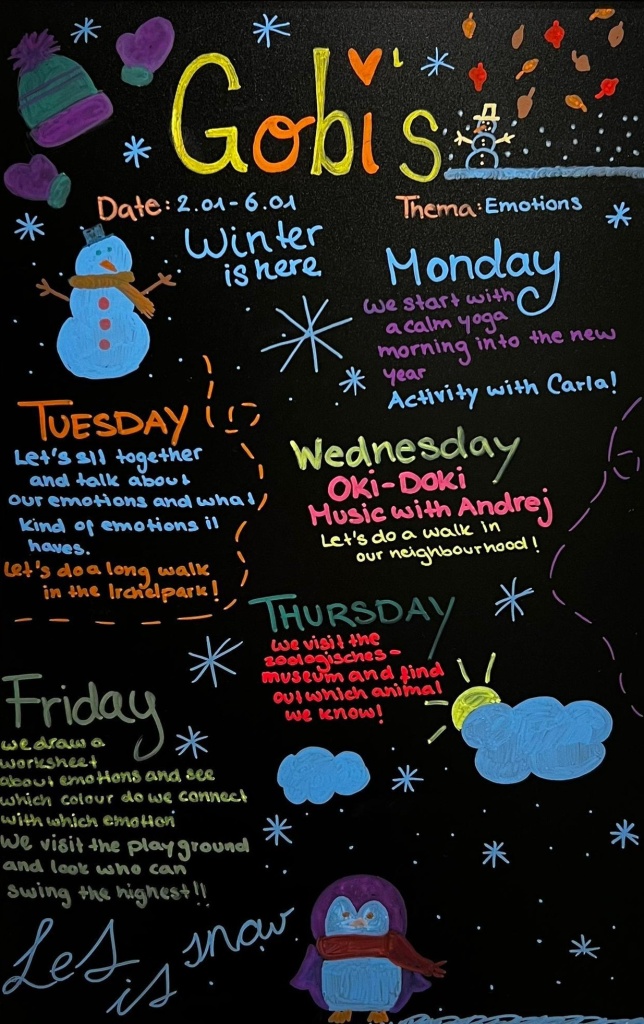 Gobi's
Date: 2.01-6.01
Thema: Emotions
Winter
is here
Monday
we start with
a calm yoga
morning into the new
year
Activity with Carla!
TUESDAY
Let's sit together
and talk about
our emotions and what
kind of emotions it
haves.
Let's do a long walk
in the Irchelpark!
Wednesday
OKi-DoKi
Music with Andrej
Let's do a walk in
our neighbourhood!
THURSDAY
we visit the
zoologisches-
museum and find
out which animal
we know!
Friday
we draw a
worksheet
about emotions and see
which colour do we connect
with which emotion
We visit the playground
and look who can
swing the highest!!
Let
is snow